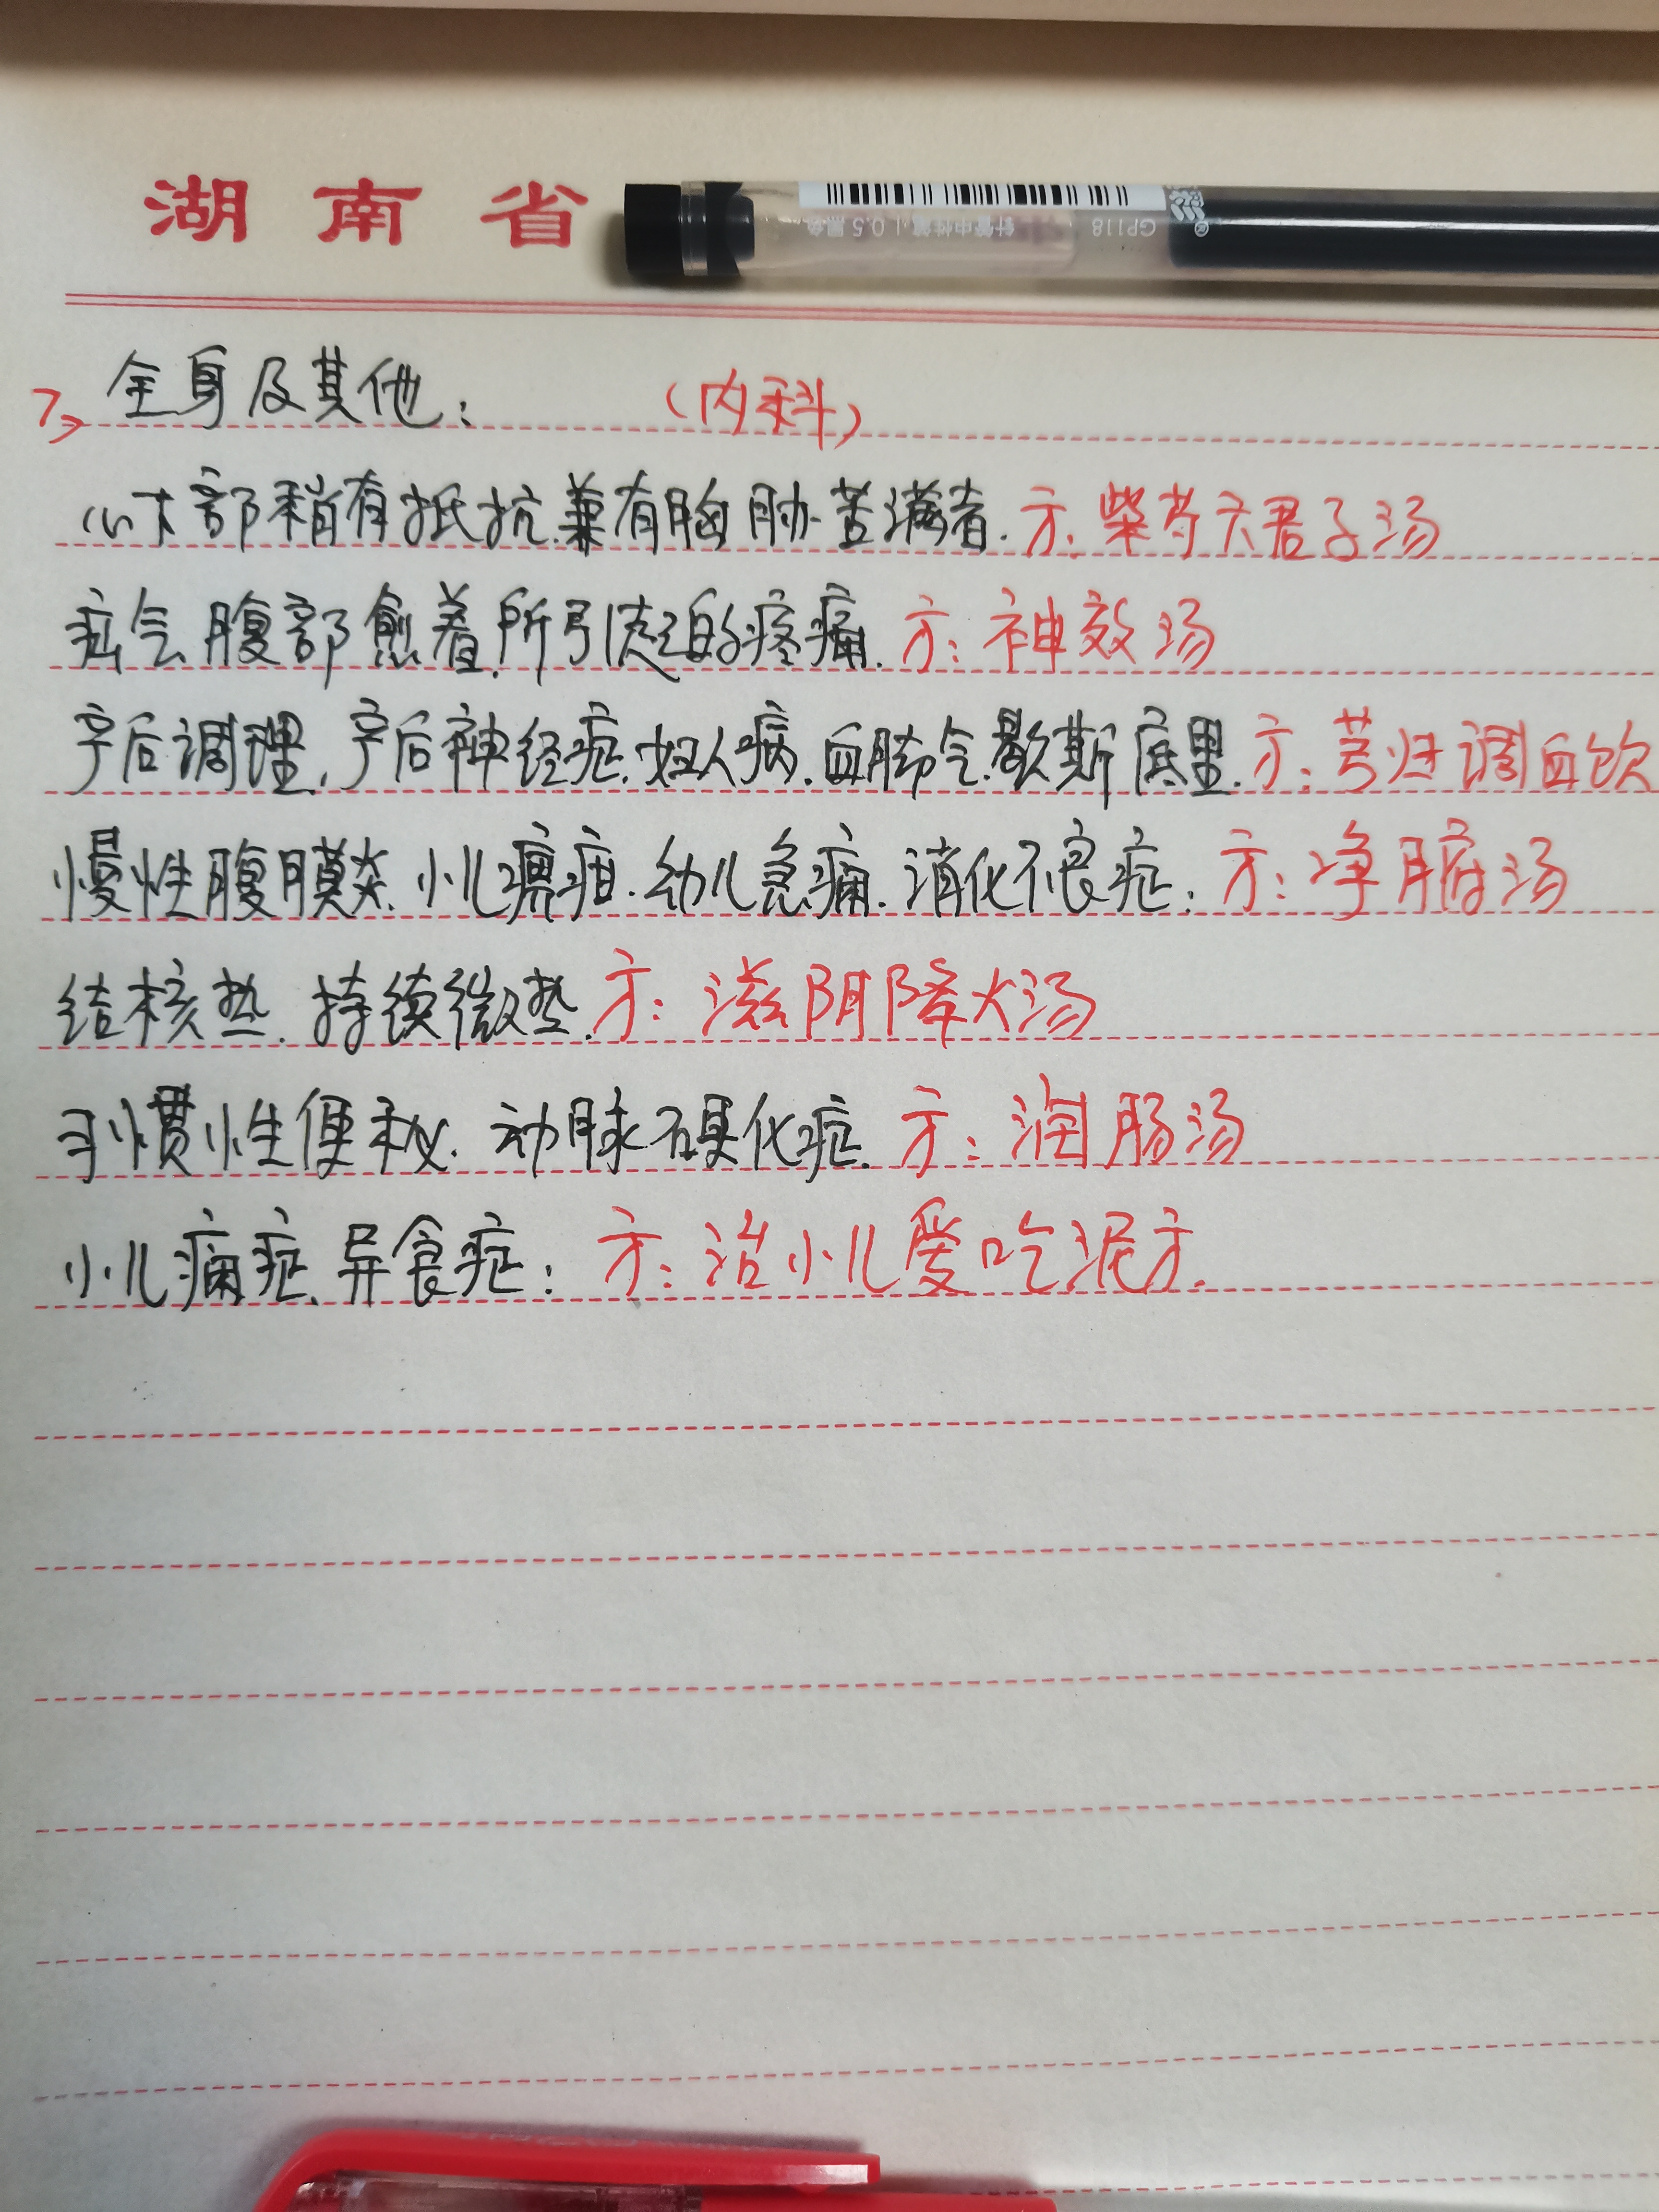 湖南省
针管中性笔 0.5 黑色 GP118
7、全身及其他：（内科）
心下部稍有抵抗.兼有胸胁苦满者.方.柴芍六君子汤
疝气.腹部愈着.所引起的疼痛.方：神效汤
产后调理.产后神经症.妇人病.血肺气.歇斯底里.方：芎归调血饮
慢性腹膜炎.小儿瘰疳.幼儿急痛.消化不良症：方：净腑汤
结核热.持续微热.方：滋阴降火汤
习惯性便秘.动脉硬化症.方：润肠汤
小儿痫症.异食症：方：治小儿爱吃泥方.